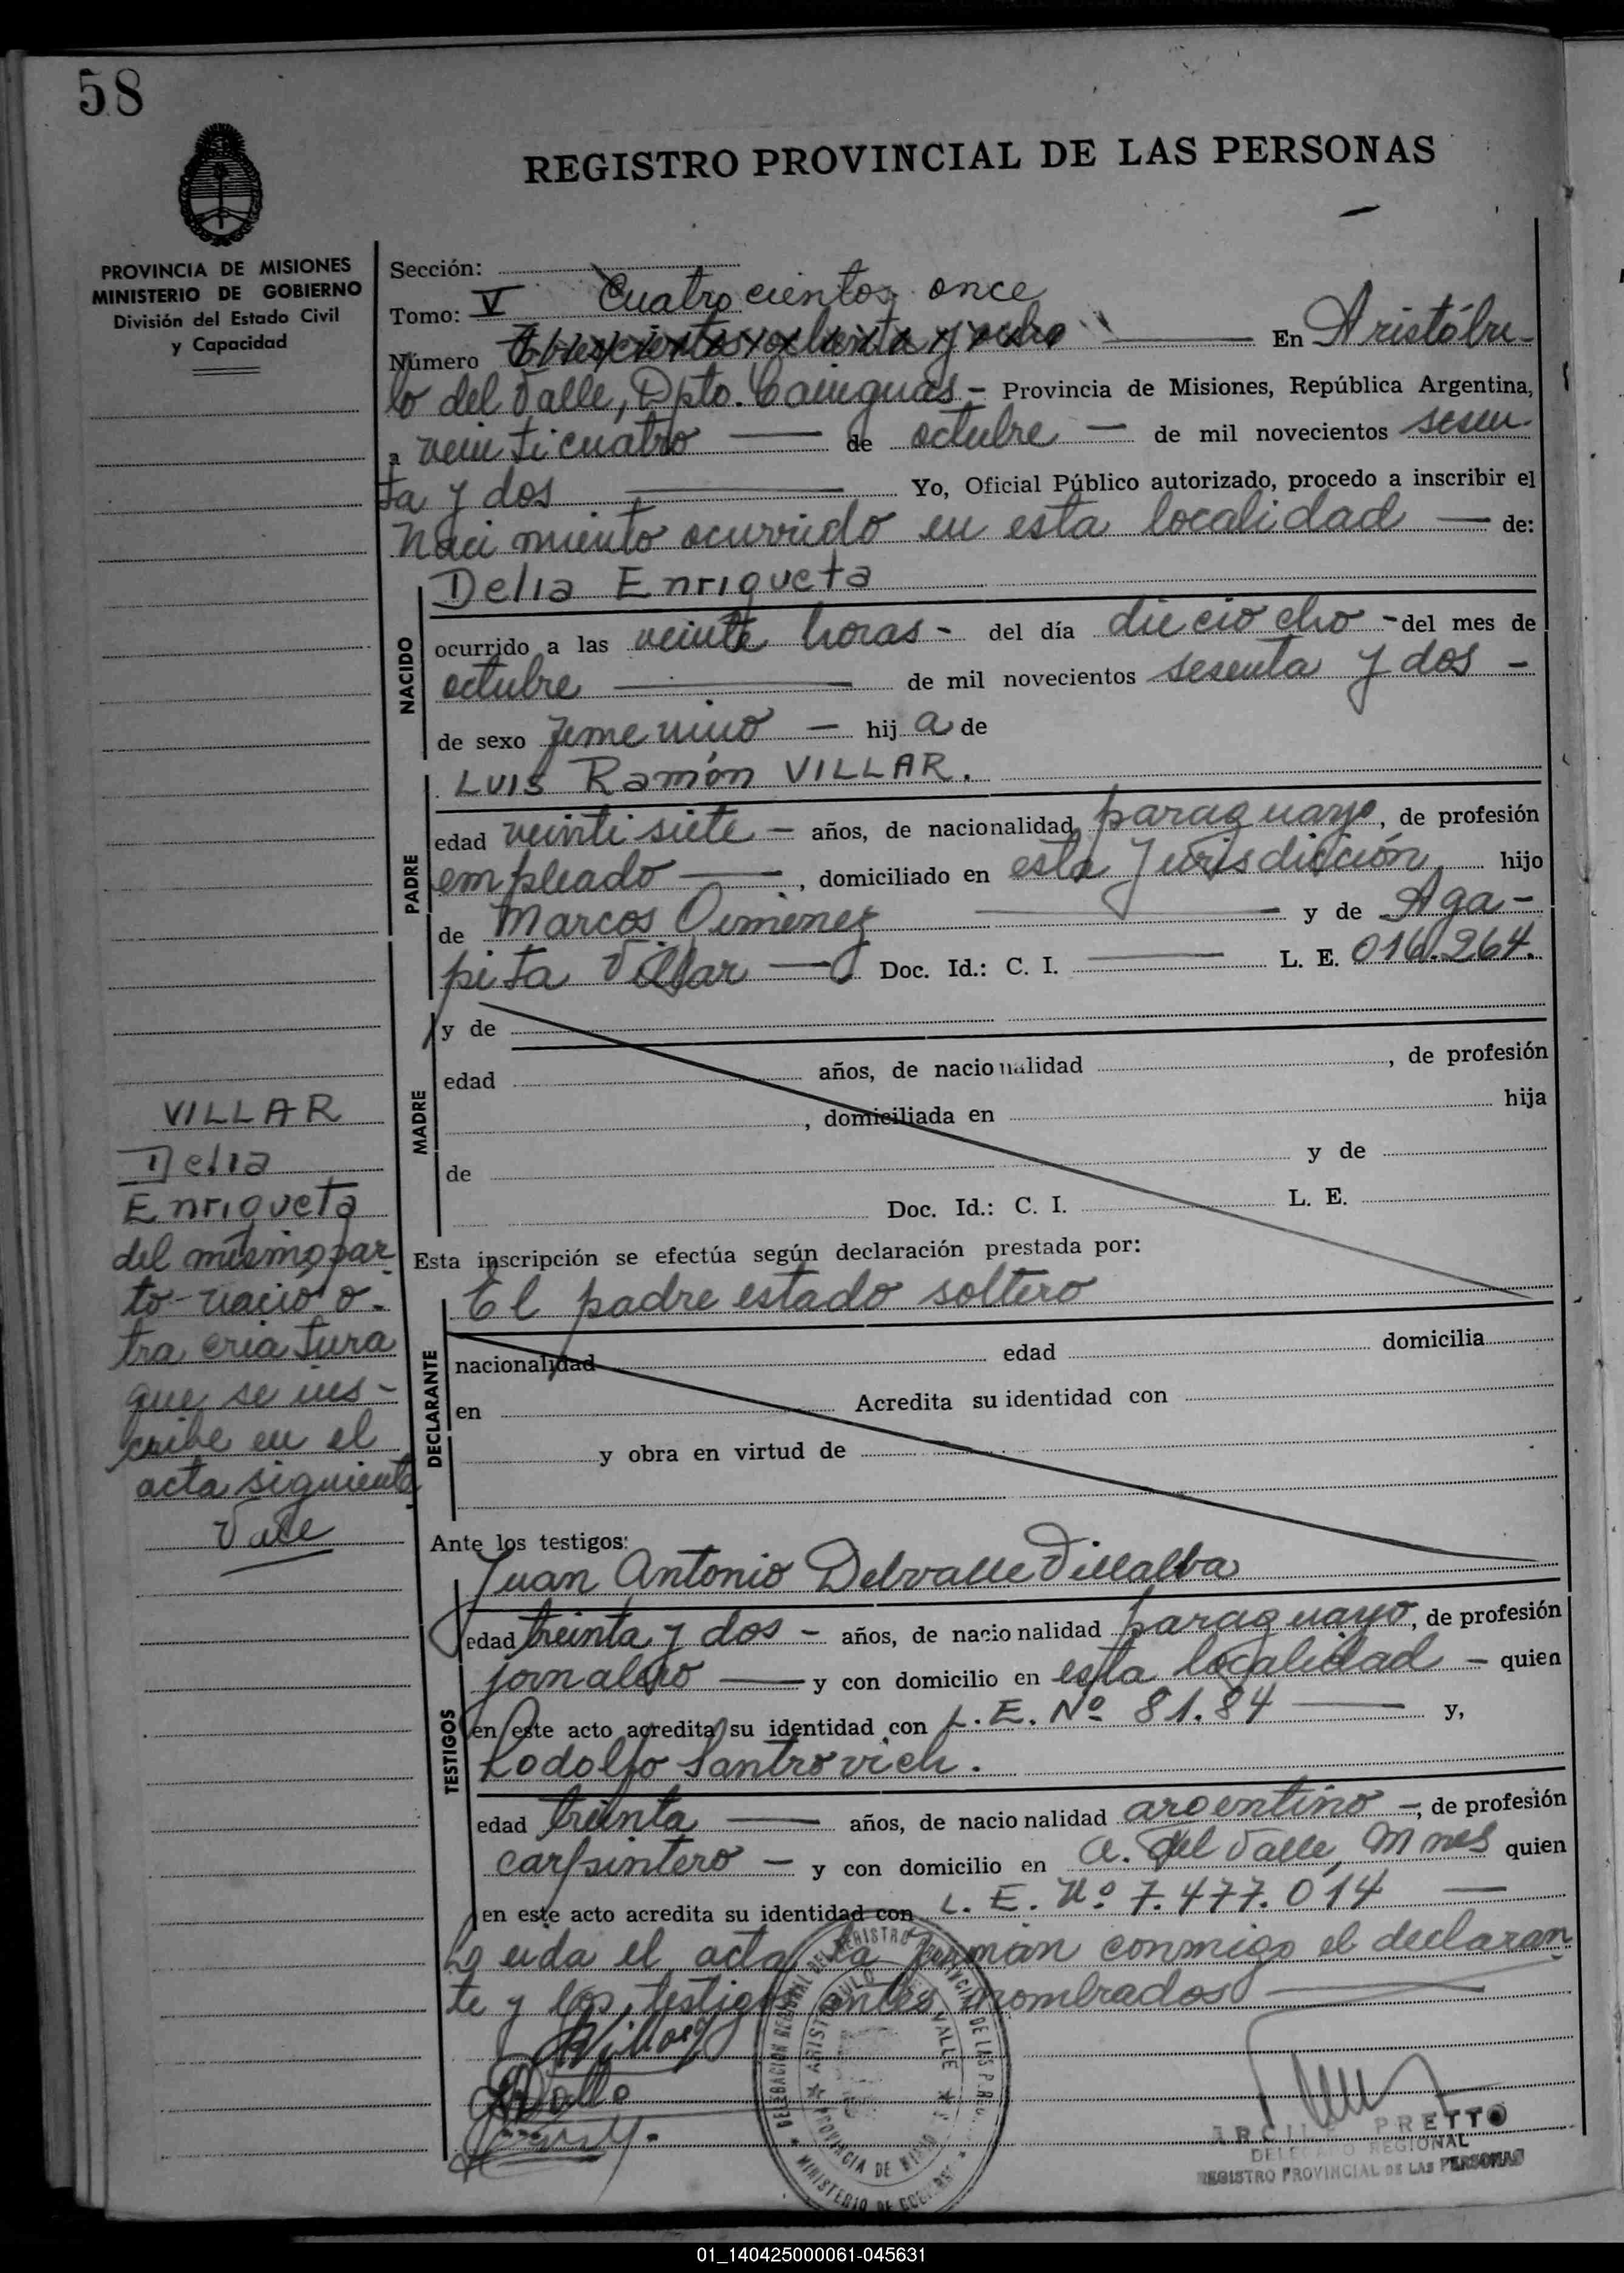 58
REGISTRO PROVINCIAL DE LAS PERSONAS
PROVINCIA DE MISIONES
MINISTERIO DE GOBIERNO
División del Estado Civil
y Capacidad
Sección:
Tomo: V Cuatrocientos once
Número Trescientos ochenta y ocho En Aristóbu-
lo del Valle, Dpto. Cainguás - Provincia de Misiones, República Argentina,
a veinticuatro de octubre - de mil novecientos sesen-
ta y dos Yo, Oficial Público autorizado, procedo a inscribir el
Nacimiento ocurrido en esta localidad - de:
NACIDO
Delia Enriqueta
ocurrido a las veinte horas - del día dieciocho - del mes de
octubre de mil novecientos sesenta y dos -
de sexo femenino - hij a de
PADRE
LUIS Ramón VILLAR.
edad veintisiete - años, de nacionalidad paraguayo, de profesión
empleado, domiciliado en esta jurisdicción hijo
de Marcos Gimenez y de Aga-
pita Villar Doc. Id.: C. I. L. E. 016.264.
MADRE
y de
edad años, de nacionalidad , de profesión
, domiciliada en hija
de y de
Doc. Id.: C. I. L. E.
Esta inscripción se efectúa según declaración prestada por:
DECLARANTE
El padre estado soltero
nacionalidad edad domicilia
en Acredita su identidad con
y obra en virtud de
VILLAR
Delia
Enriqueta
del mismo par-
to nació o-
tra criatura
que se ins-
cribe en el
acta siguiente
Vale
Ante los testigos:
TESTIGOS
Juan Antonio Delvalle Villalba
edad treinta y dos - años, de nacionalidad paraguayo, de profesión
jornalero y con domicilio en esta localidad - quien
en este acto acredita su identidad con L. E. Nº 81.84 y,
Rodolfo Santrovich.
edad treinta años, de nacionalidad argentino -, de profesión
carpintero - y con domicilio en A. del Valle, Mnes quien
en este acto acredita su identidad con L. E. Nº 7.477.014
Leida el acta la firman conmigo el declaran-
te y los testigos antes nombrados
DELEGACION REGIONAL DEL REGISTRO PROVINCIAL DE LAS
ARISTOBULO VALLE
PROVINCIA DE
MINISTERIO DE
PRETTO
DELEGADO REGIONAL
REGISTRO PROVINCIAL DE LAS PERSONAS
01_140425000061-045631